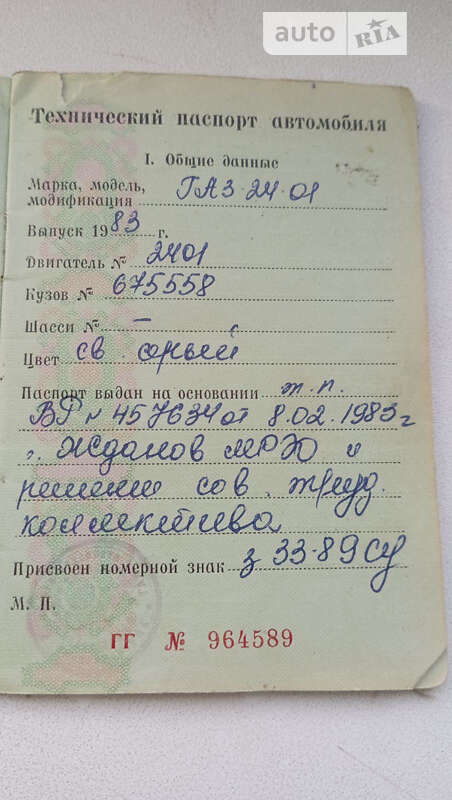 auto RIA
Технический паспорт автомобиля
I. Общие данные
Марка, модель, модификация ГАЗ-24-01
Выпуск 1983 г.
Двигатель № 2401
Кузов № 675558
Шасси № —
Цвет св серый
Паспорт выдан на основании т.п.
ВР № 457634 от 8.02.1983г
Жданов МРЭО и
решение сов. труд.
коллектива
Присвоен номерной знак з 33-89 СУ
М. П.
ГГ № 964589